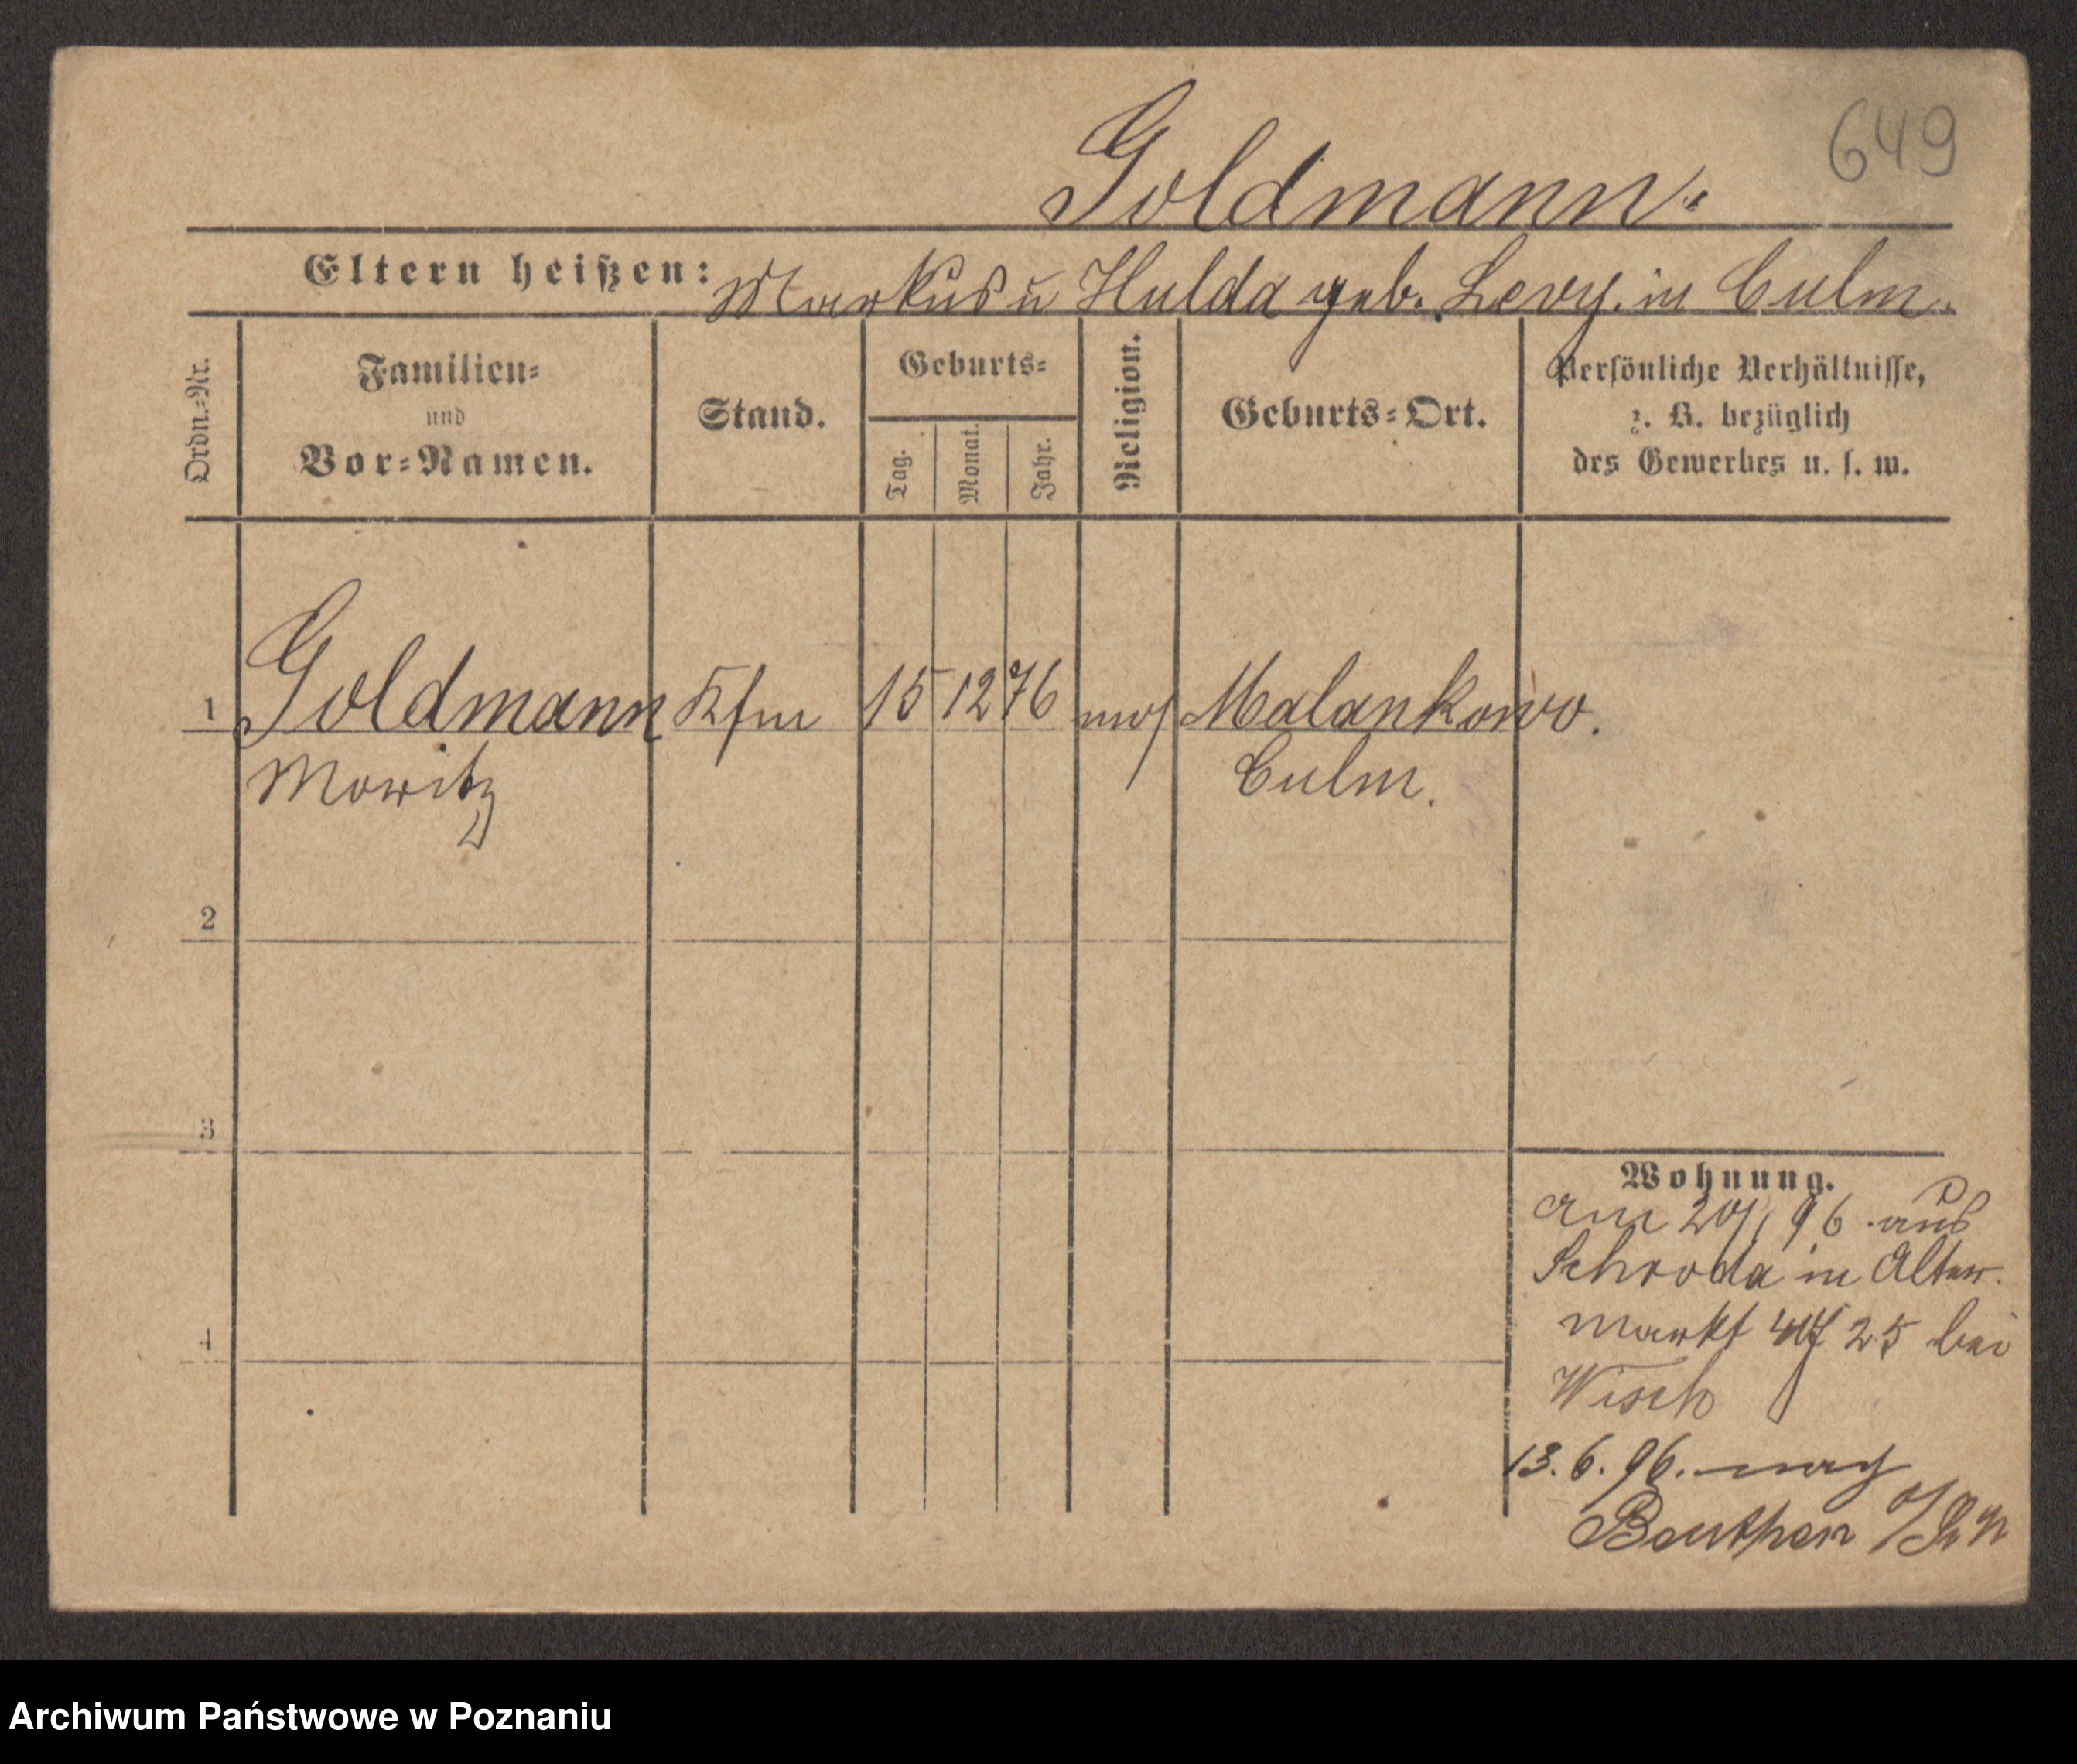 649
Goldmann.
Eltern heißen: Markus u Hulda geb. Levy. in Culm.
Ordn.=Nr.
Familien=
und
Vor=Namen.
Stand.
Geburts=
Tag.
Monat.
Jahr.
Religion.
Geburts=Ort.
Persönliche Verhältnisse,
z. B. bezüglich
des Gewerbes u. s. w.
1 Goldmann Kfm 15 12 76 mos Malankowo.
Moritz Culm.
2
3
4
Wohnung.
am 96 aus
Schroda in Alter.
markt 25 bei
Wisch
13.6.96. nach
Beuthen
Archiwum Państwowe w Poznaniu